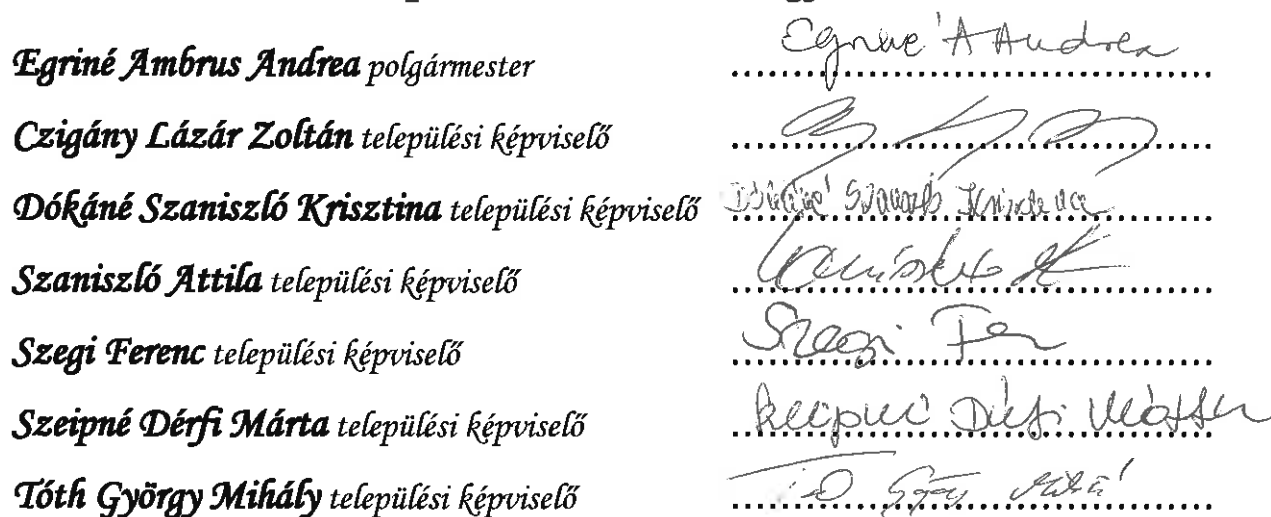 Egriné Ambrus Andrea polgármester Egriné A Andrea
Czigány Lázár Zoltán települési képviselő
Dókáné Szaniszló Krisztina települési képviselő Dókáné Szaniszló Krisztina
Szaniszló Attila települési képviselő Szaniszló A
Szegi Ferenc települési képviselő Szegi Fer
Szeipné Dérfi Márta települési képviselő Szeipné Dérfi Márta
Tóth György Mihály települési képviselő Tóth György Mihály